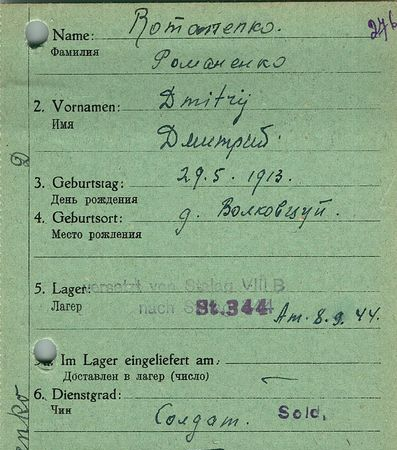 Name: Romanenko. 276
Фамилия Романенко
2. Vornamen: Dmitrij
Имя Дмитрий.
3. Geburtstag: 29.5.1913.
День рождения
4. Geburtsort: д. Волковцуй.
Место рожления
5. Lager: versetzt von Stalag VIII B
Лагер nach St.344 Am. 8.9.44.
Im Lager eingeliefert am
Доставлен в лагер (число) –
6. Dienstgrad:
Чин Солдат. Sold.
enko